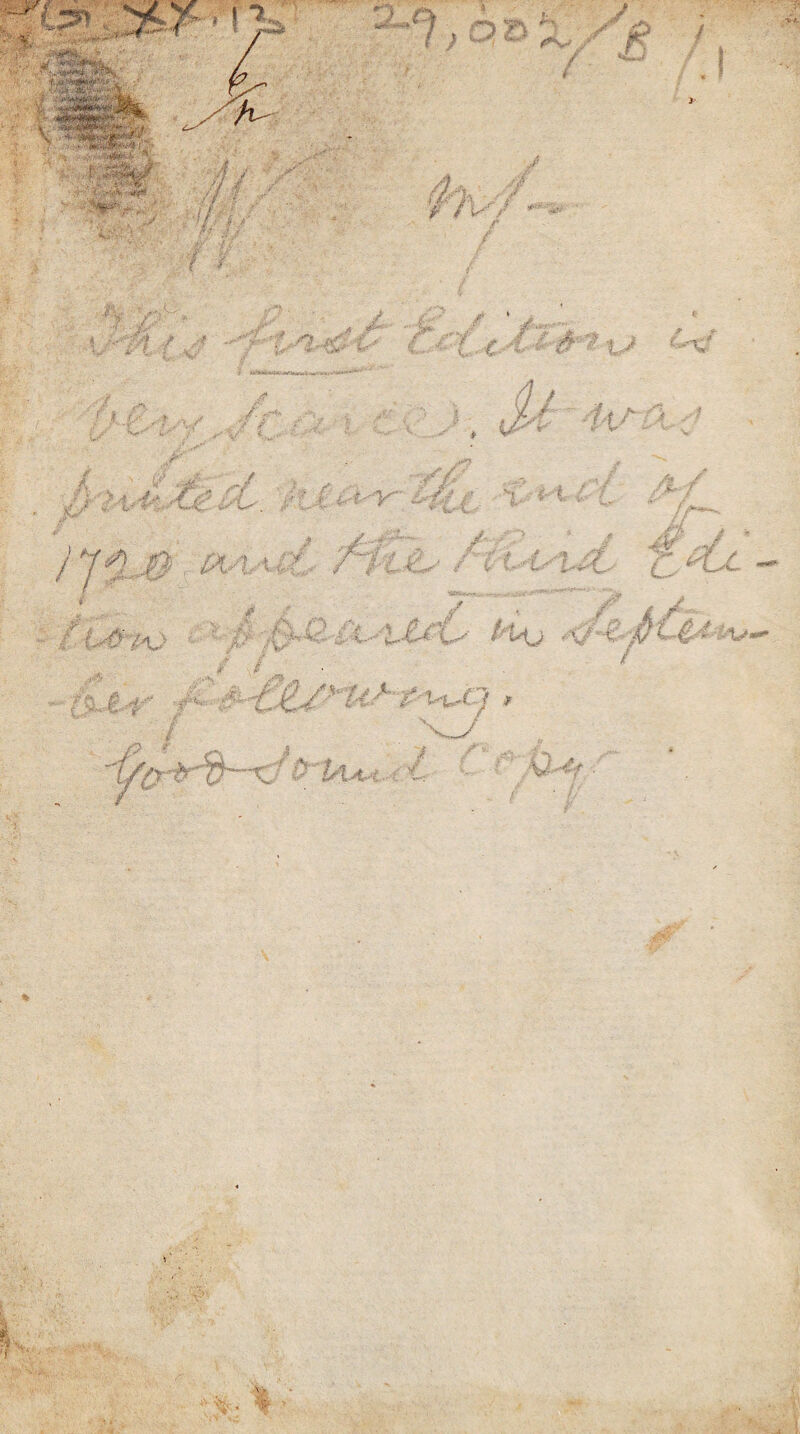 XX.12 29,002/B/1
W m/-
This first Edition is
very scarce. It was
printed near the end of
1720 and the third Edi-
-tion appeared in Septem-
-ber following.
Good Sound Copy